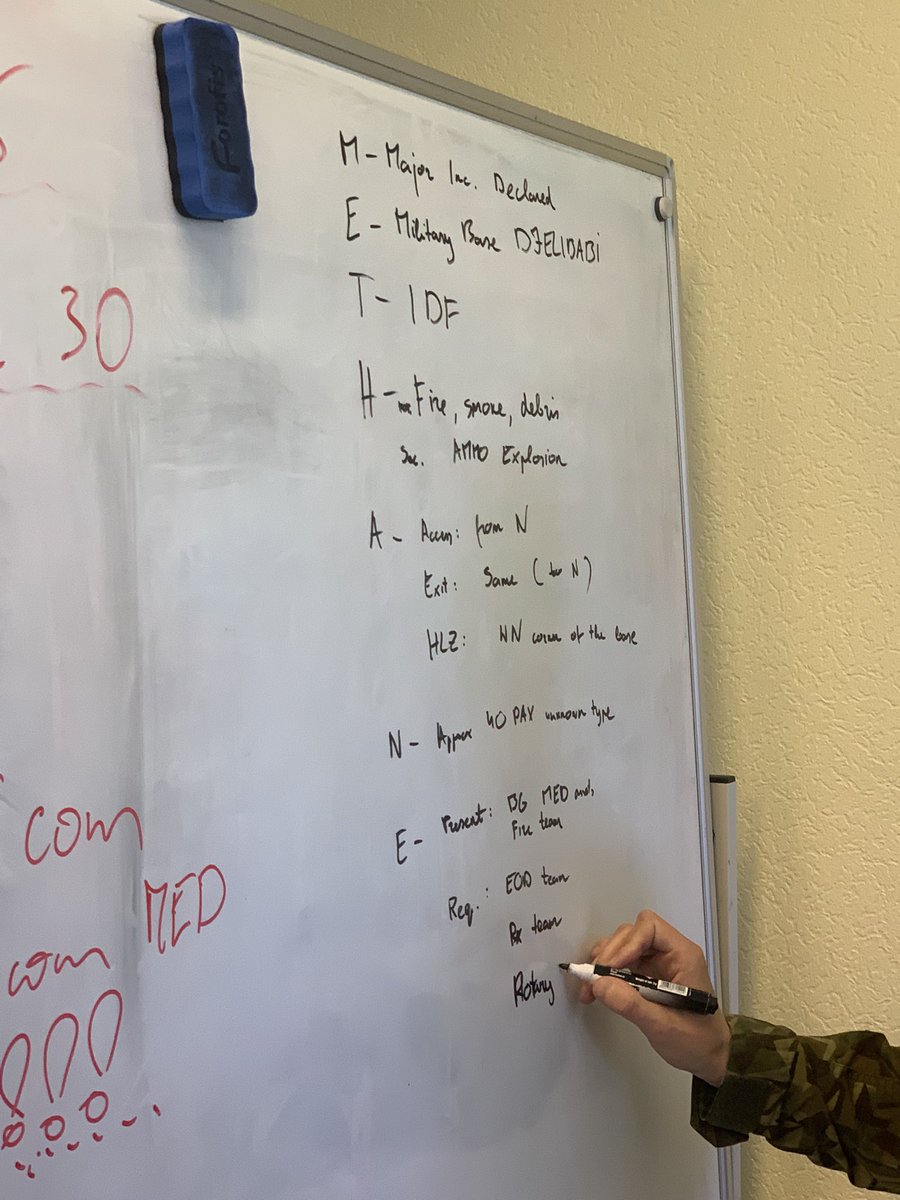 30
com
MED
com
M - Major Inc. Declared
E - Military Base DJELIBABI
T - IDF
H - Fire, smoke, debris
Sec. AMMO Explosion
A - Access: from N
Exit: Same (to N)
HLZ: NN corner of the base
N - Approx 40 PAX unknown type
E - Present: BG MED and
Fire team
Req.: EOD team
team
Rotary